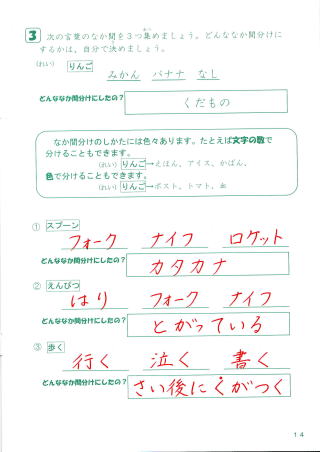 3 次の言葉のなか間を3つ集めましょう。どんななか間分けに
するかは、自分で決めましょう。
(れい) りんご
みかん バナナ なし
どんななか間分けにしたの? くだもの
なか間分けのしかたには色々あります。たとえば文字の数で
分けることもできます。
(れい) りんご→えほん、アイス、かばん、
色で分けることもできます。
(れい) りんご→ポスト、トマト、血
① スプーン
フォーク ナイフ ロケット
どんななか間分けにしたの? カタカナ
② えんぴつ
はり フォーク ナイフ
どんななか間分けにしたの? とがっている
③ 歩く
行く 泣く 書く
どんななか間分けにしたの? さい後にくがつく
14